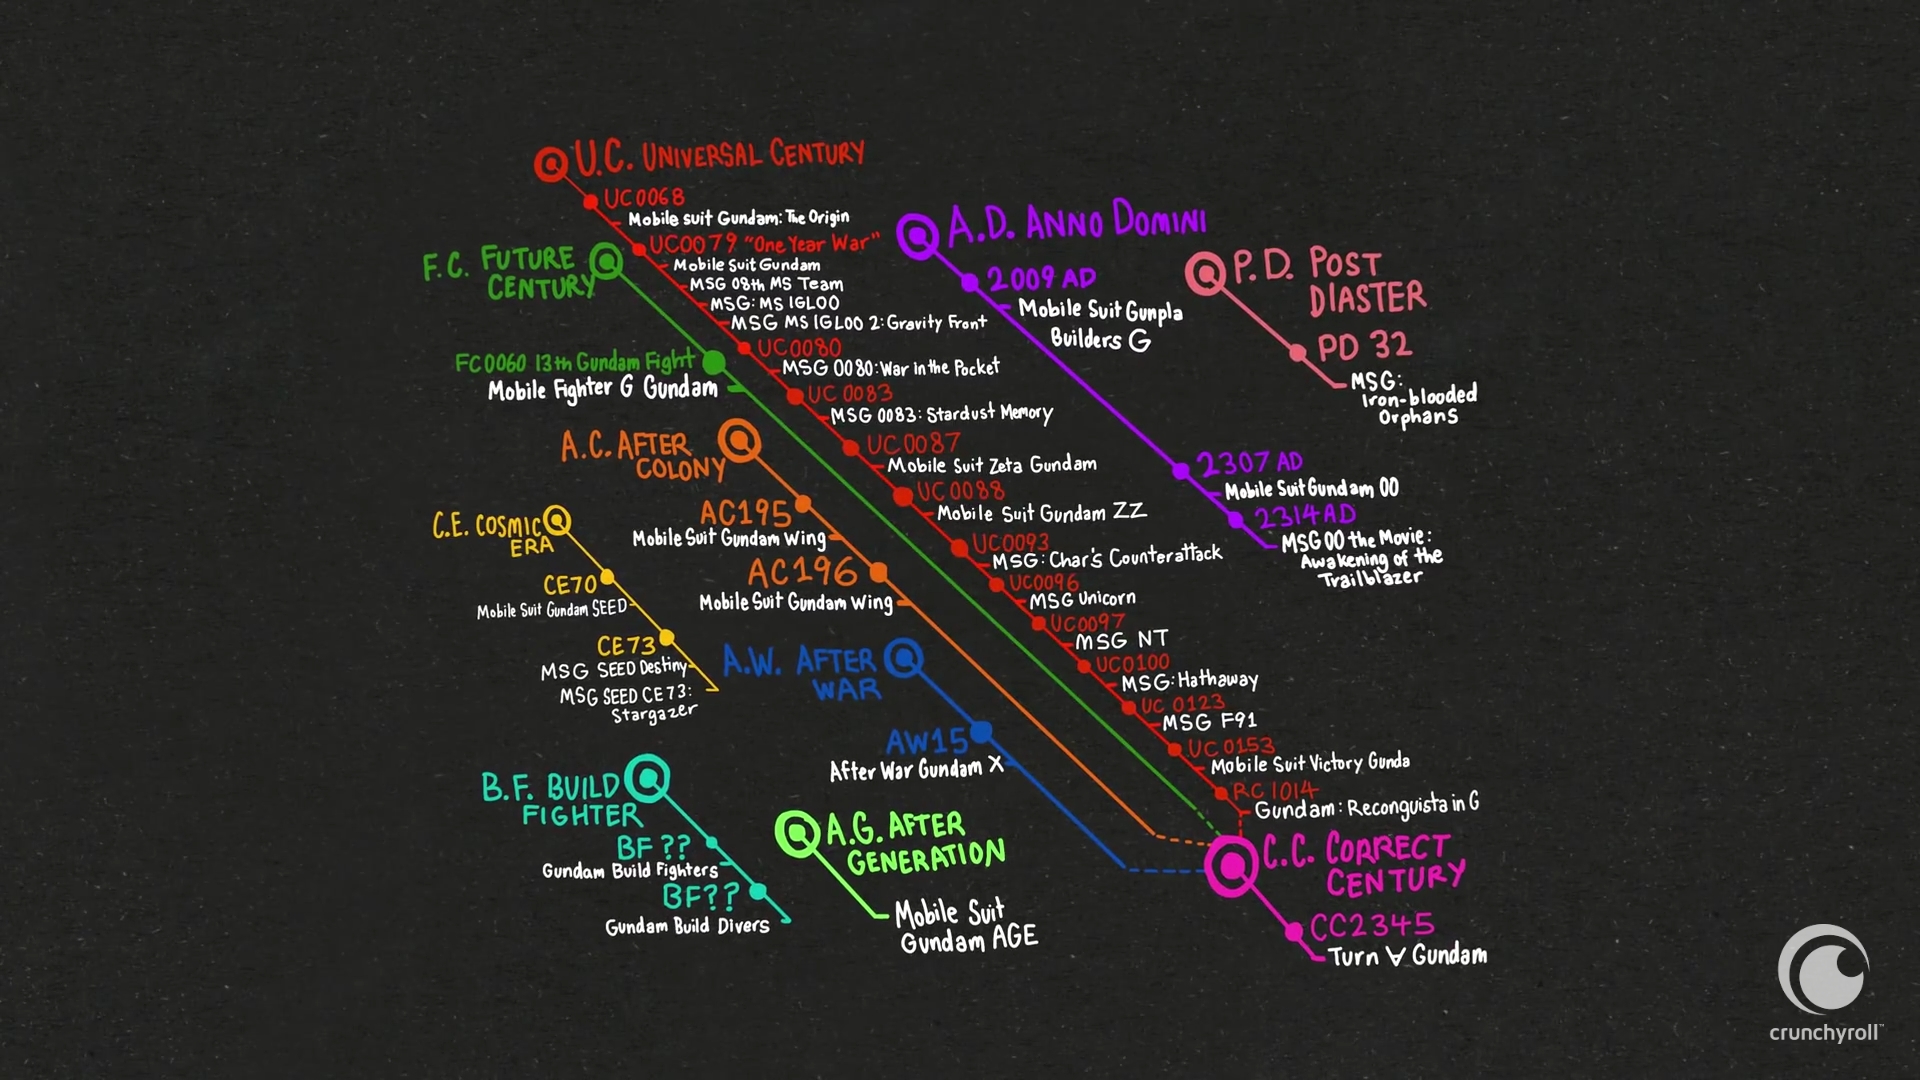 U.C. UNIVERSAL CENTURY
UC0068
Mobile suit Gundam: The Origin
UC0079 "One Year War"
Mobile Suit Gundam
MSG 08th MS Team
MSG: MS IGLOO
MSG MS IGLOO 2: Gravity Front
UC0080
MSG 0080: War in the Pocket
UC 0083
MSG 0083: Stardust Memory
UC0087
Mobile Suit Zeta Gundam
UC 0088
Mobile Suit Gundam ZZ
UC0093
MSG: Char's Counterattack
UC0096
MSG Unicorn
UC0097
MSG NT
UC0100
MSG: Hathaway
UC 0123
MSG F91
UC 0153
Mobile Suit Victory Gunda
RC 1014
Gundam: Reconguista in G
F.C. FUTURE
CENTURY
FC0060 13th Gundam Fight
Mobile Fighter G Gundam
A.C. AFTER
COLONY
AC195
Mobile Suit Gundam Wing
AC196
Mobile Suit Gundam Wing
C.E. COSMIC
ERA
CE70
Mobile Suit Gundam SEED
CE73
MSG SEED Destiny
MSG SEED CE 73:
Stargazer
A.W. AFTER
WAR
AW15
After War Gundam X
B.F. BUILD
FIGHTER
BF ??
Gundam Build Fighters
BF??
Gundam Build Divers
A.G. AFTER
GENERATION
Mobile Suit
Gundam AGE
A.D. ANNO DOMINI
2009 AD
Mobile Suit Gunpla
Builders G
2307 AD
Mobile Suit Gundam 00
2314 AD
MSG 00 the Movie:
Awakening of the
Trailblazer
P.D. POST
DIASTER
PD 32
MSG:
Iron-blooded
Orphans
C.C. CORRECT
CENTURY
CC2345
Turn ∀ Gundam
crunchyroll